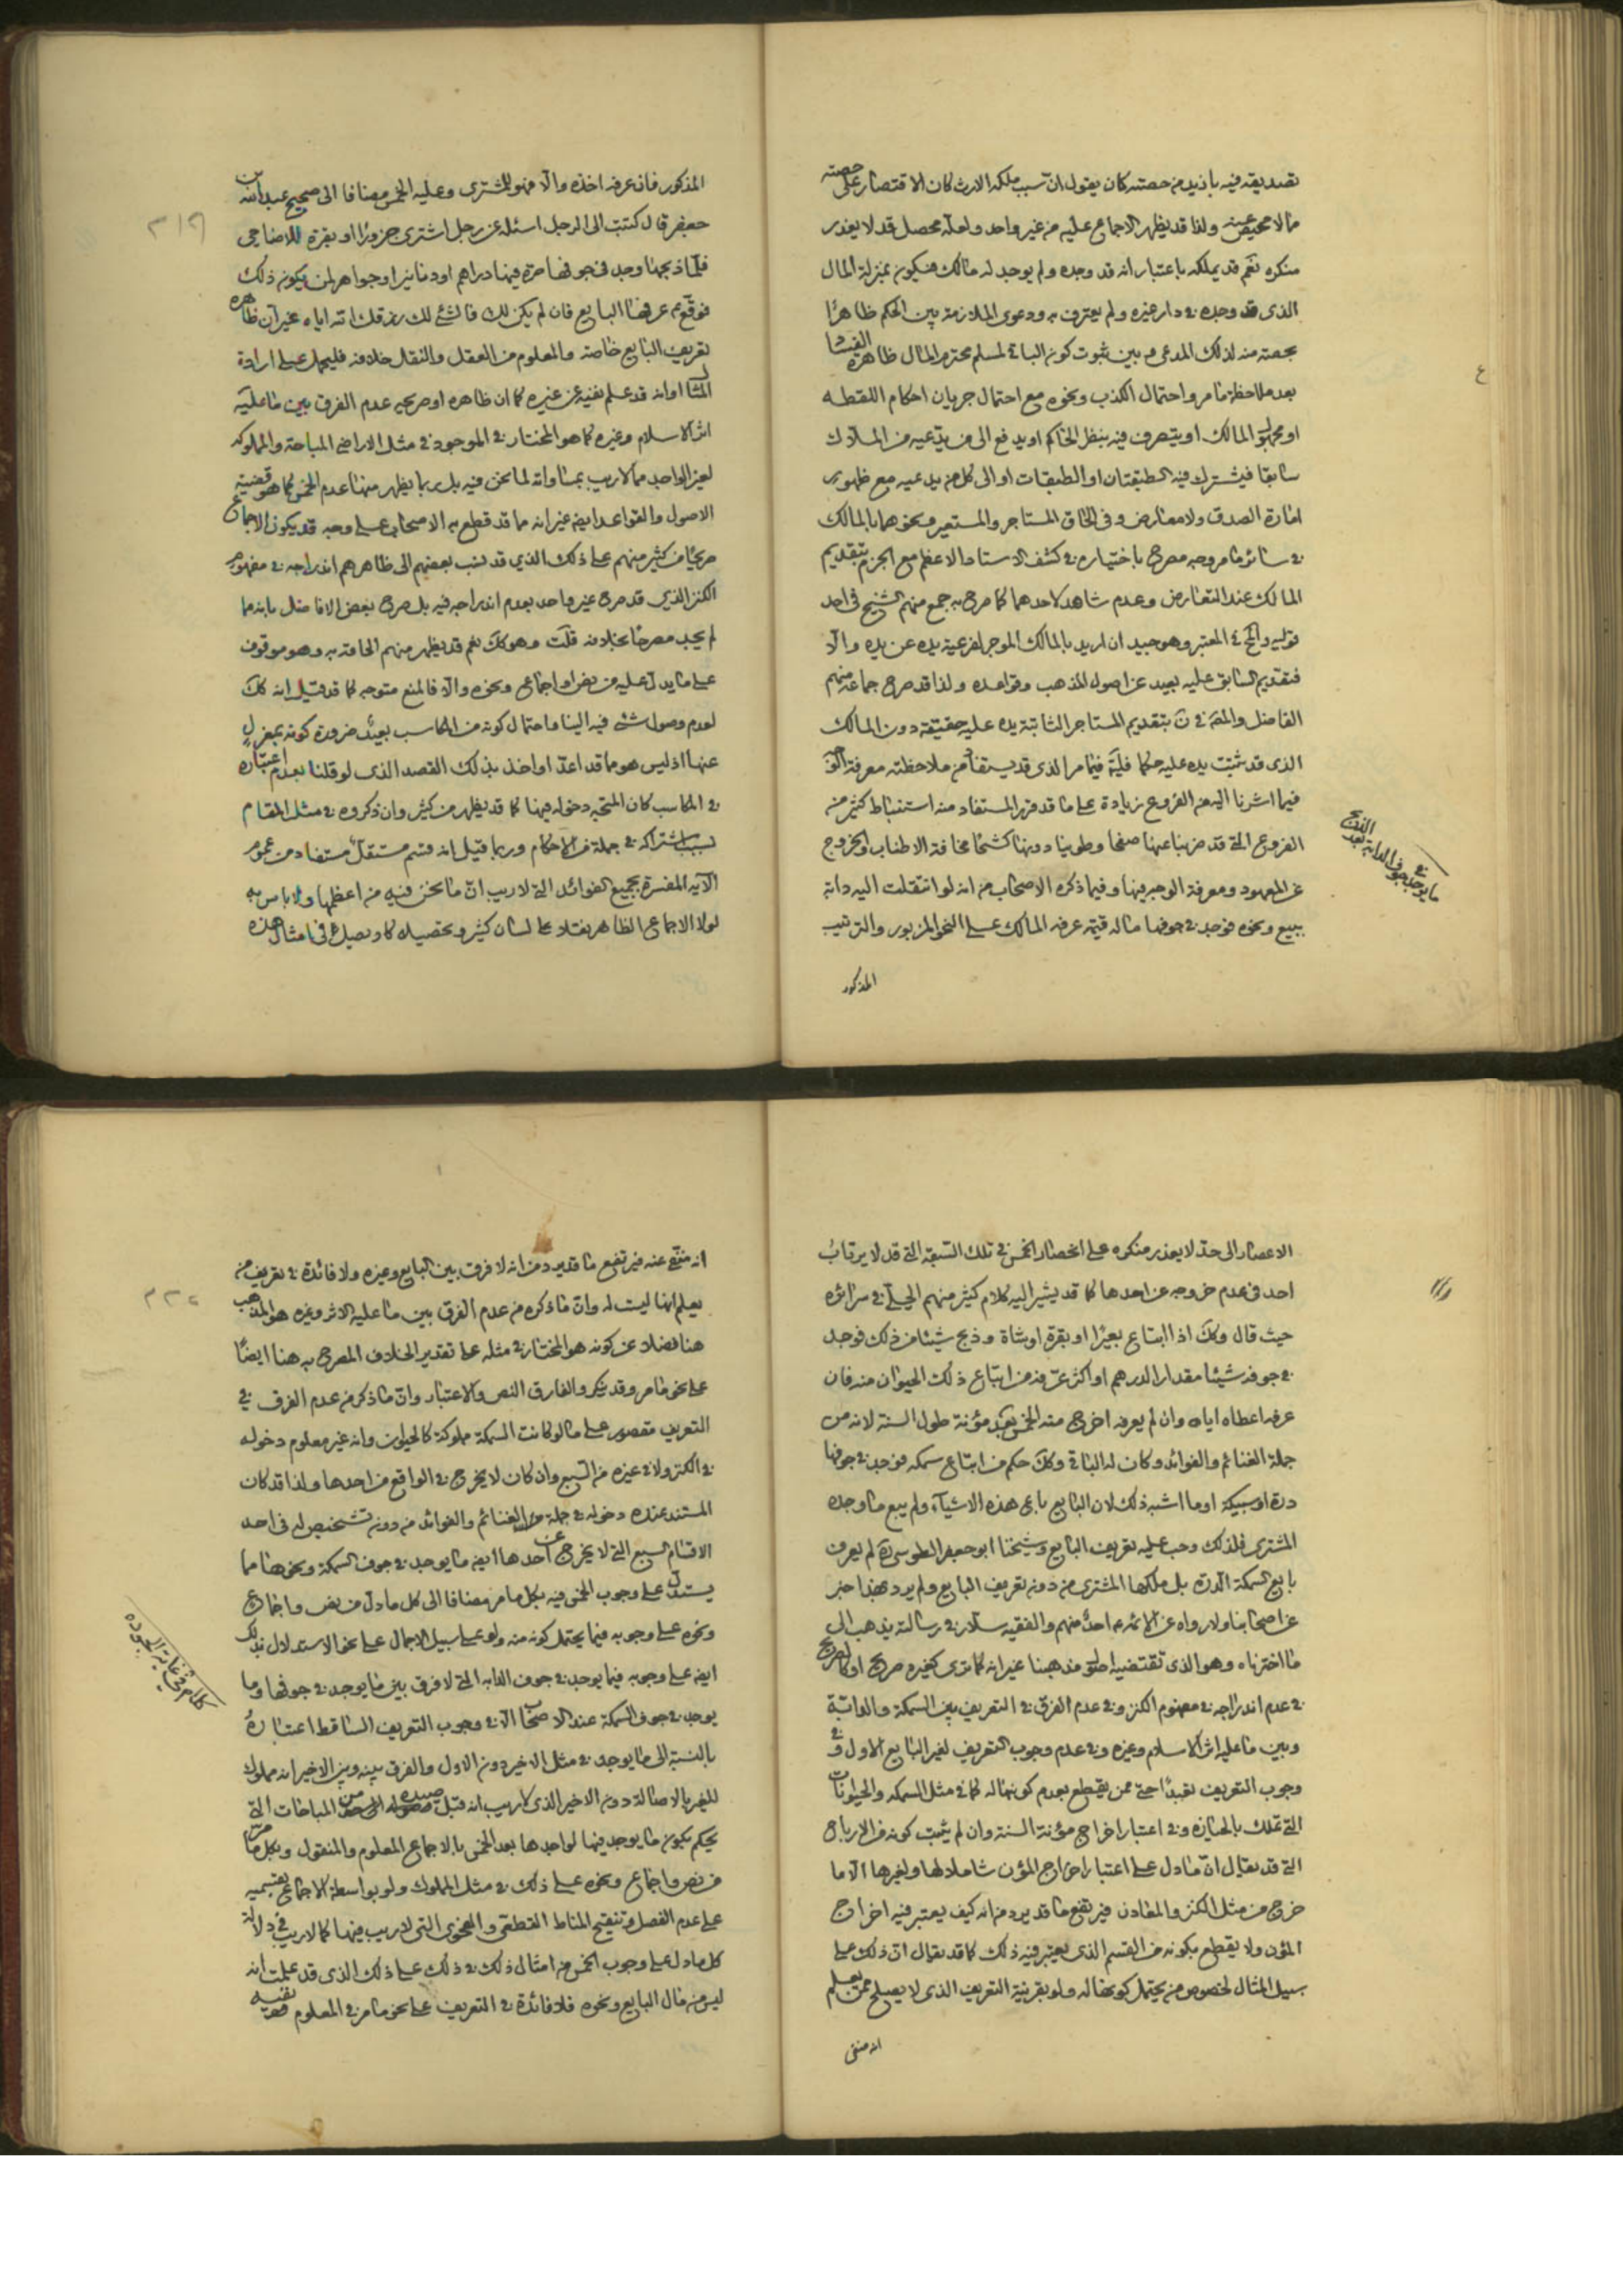 تصديقه فيه بازيد من حصته كان يقول ان سبب ملكه الارث كان الاقتصار على حصته
مما لا محيص عنه ولذا قد يظهر الاجماع عليه من غير واحد ولعله محصل قد لا يعذر
منكره نعم قد يملكه باعتبار انه قد وجده ولم يوجد له مالك فيكون بمنزلة المال
الذى قد وجده في دار غيره ولم يعترف به ودعوى الملازمة بين الحكم ظاهرا
بحصته منه لذلك المدعى وبين ثبوت كون الباقي لمسلم محترم المال ظاهرة الفساد
بعد ملاحظة ما مر واحتمال الكذب ونحوه مع احتمال جريان احكام اللقطه
او مجهول المالك او يتصرف فيه بنظر الحاكم او يدفع الى من يدعيه من الملاك
سابقا فيشترك فيه الطبقتان او الطبقات او الى كل من يدعيه مع ظهور
امارة الصدق ولا معارض وفى الحاق المستاجر والمستعير ونحوهما بالمالك
في سائر ما مر وجه مصرح باختياره في كشف الاستاد الاعظم مع الجزم بتقديم
المالك عند التعارض وعدم شاهد لاحدهما كما صرح به جمع منهم الشيخ فى احد
قوليه و في المعتبر وهو جيد ان اريد بالمالك الموجر لفرعية يده عن يده والا
فتقديم السابق عليه بعيد عن اصول المذهب وقواعده ولذا قد صرح جماعة منهم
الفاضل والمصـ في ن بتقديم المستاجر الثابتة يده عليه حقيقة دون المالك
الذى قد ثبتت يده عليه حكما فليتم فيما مر الذى قد يستفاد من ملاحظته معرفة
فيما اشرنا اليه من الفروع زيادة على ما قد قرر المستفاد منه استنباط كثير من
الفروع التى قد ضربنا عنها صفحا وطوينا دونها كشحا مخافة الاطناب والخروج
عن المعهود ومعرفة الوجه فيها وفيما ذكره الاصحاب من انه لو انتقلت اليه دابة
ببيع ونحوه فوجد في جوفها ماله قيمة عرفه المالك على النحو المزبور والترتيب
المذكور
ما يوجد في جوف الدابة بعد الذبح
المذكور فان عرفه اخذه والا فهو للمشترى وعليه الخمس مضافا الى صحيح عبد الله بن
جعفر قال كتبت الى الرجل اسئله عن رجل اشترى جزورا او بقرة للاضاحى
فلما ذبحها وجد فى جوفها صرة فيها دراهم او دنانير او جواهر لمن يكون ذلك
فوقع ع عرفها البايع فان لم يكن له فالشئ لك رزقك الله اياه غير ان ظاهره
تعريف البايع خاصة والمعلوم من العقل والنقل خلافه فليحمل على ارادة
المثال او انه قد علم نفيه عن غيره كما ان ظاهره او صريحه عدم الفرق بين ما عليه
اثر الاسلام وغيره كما هو المختار في الموجود في مثل الاراضى المباحة والمملوكه
لغير الواجد مما لا ريب بمساواته لما نحن فيه بل ربما يظهر منها عدم الخمس كما هو قضية
الاصول والقواعد ايضا غير انه مما قد قطع به الاصحاب على وجه قد يكون الاجماع
صريحا من كثير منهم على ذلك الذي قد نسب بعضهم الى ظاهرهم اندراجه في مفهوم
الكنز الذى قد صرح غير واحد بعدم اندراجه فيه بل صرح بعض الافاضل بانه مما
لم يجد مصرحا بخلافه قلت وهو كك نعم قد يظهر منهم الحاقه به وهو موقوف
على ما يدل عليه من نص او اجماع ونحوه والا فالمنع متوجه كما قد قيل انه كك
لعدم وصول شئ فيه الينا واحتمال كونه من المكاسب بعيد ضرورة كونه بمعزل
عنها اذ ليس هو مما قد اعد او اخذ بذلك القصد الذى لو قلنا بعدم اعتباره
في المكاسب كان المتجه دخوله فيها كما قد يظهر من كثير وان ذكروه في مثل المقام
بسبب اشتراكه في جملة من الاحكام وربما قيل انه قسم مستقل مستفاد من عموم
الآيه المفسرة بجميع الفوائد التى لا ريب ان ما نحن فيه من اعظمها ولا باس به
لولا الاجماع الظاهر نقله على لسان كثير وتحصيله كاد يصل فى امثال هذه
الاعصار الى حد لا يعذر منكره على انحصار الخمس في تلك السبعة التى قد لا يرتاب
احد فى عدم خروجه عن احدها كما قد يشير اليه كلام كثير منهم الحلى في سرائره
حيث قال وكك اذا ابتاع بعيرا او بقرة او شاة وذبح شيئا من ذلك فوجد
في جوفه شيئا مقدار الدرهم او اكثر عرفه من ابتاع ذلك الحيوان منه فان
عرفه اعطاه اياه وان لم يعرفه اخرج منه الخمس بعد مؤنة طول السنة لانه من
جملة الغنائم والفوائد وكان له الباقي وكك حكم من ابتاع سمكه فوجد في جوفها
درة او سبيكة او ما اشبه ذلك لان البايع باع هذه الاشياء ولم يبع ما وجده
المشترى فلذلك وجب عليه تعريف البايع وشيخنا ابو جعفر الطوسى ره لم يعرف
بايع السمكة الدرة بل ملكها المشترى من دون تعريف البايع ولم يرد بهذا خبر
عن اصحابنا ولا رواه عن الائمة ع احد منهم والفقيه سلار في رسالته يذهب الى
ما اخترناه وهو الذى تقتضيه اصول مذهبنا غير انه كما ترى كغيره صريح او كالصريح
في عدم اندراجه في مفهوم الكنز وفي عدم الفرق في التعريف بين السمكة والدابة
وبين ما عليه اثر الاسلام وغيره وفي عدم وجوب التعريف لغير البايع الاول وفي
وجوب التعريف تعبدا حتى ممن يقطع بعدم كونها له كما في مثل السمكه والحيوانات
التى تملك بالحيازة وفي اعتبار اخراج مؤنة السنة وان لم يثبت كونه من الارباح
التى قد يقال ان ما دل على اعتبار اخراج المؤن شاملا لها ولغيرها الا ما
خرج من مثل الكنز والمعادن فيرتفع ما قد يرد من انه كيف يعتبر فيه اخراج
المؤن ولا يقطع بكونه من القسم الذى يعتبر فيه ذلك كما قد يقال ان ذلك على
سبيل المثال لخصوص من يحتمل كونها له ولو بقرينة التعريف الذى لا يصلح ممن يعلم
انه منفى
انه منفى عنه فيرتفع ما قد يرد من انه لا فرق بين البايع وغيره ولا فائدة في تعريف من
يعلم انها ليست له وان ما ذكره من عدم الفرق بين ما عليه الاثر وغيره هو المذهب
هنا فضلا عن كونه هو المختار في مثله على تقدير الخلاف المصرح به هنا ايضا
على نحو ما مر وقد ينكر والفارق النص والاعتبار وان ما ذكر من عدم الفرق في
التعريف مقصور على ما لو كانت السمكة مملوكة كالحيوان وانه غير معلوم دخوله
في الكنز ولا في غيره من السبع وان كان لا يخرج في الواقع من احدها ولذا قد كان
المستند عنده دخوله في جملة الغنائم والفوائد من دون تشخيص له فى احد
الاقسام السبع التى لا يخرج عن احدها ايضا ما يوجد في جوف السمكة ونحوها مما
يستدل على وجوب الخمس فيه بكل ما مر مضافا الى كل ما دل من نص واجماع
ونحوه على وجوبه فيما يحتمل كونه منه ولو على سبيل الاجمال على نحو الاستدلال بذلك
ايضا على وجوبه فيما يوجد في جوف الدابه التى لا فرق بين ما يوجد في جوفها وما
يوجد في جوف السمكة عند الاصحاب الا في وجوب التعريف الساقط اعتباره
بالنسبة الى ما يوجد في مثل الاخير دون الاول والفرق بينه وبين الاخير انه مملوك
للغير بالاصالة دون الاخير الذى لا ريب انه قبل صيده من المباحات التى
يحكم بكون ما يوجد فيها لواجدها بعد الخمس بالاجماع المعلوم والمنقول وبكل ما مر
من نص واجماع ونحوه على ذلك في مثل المملوك ولو بواسطة الاجماع بقسميه
على عدم الفصل وتنقيح المناط القطعى والفحوى التى لا ريب فيها كما لا ريب في دلالة
كل ما دل على وجوب الخمس في امثال ذلك في ذلك على ذلك الذى قد علمت انه
ليس من مال البايع ونحوه فلا فائدة في التعريف على نحو ما مر في المعلوم نفيه
كلام في غاية الجوده